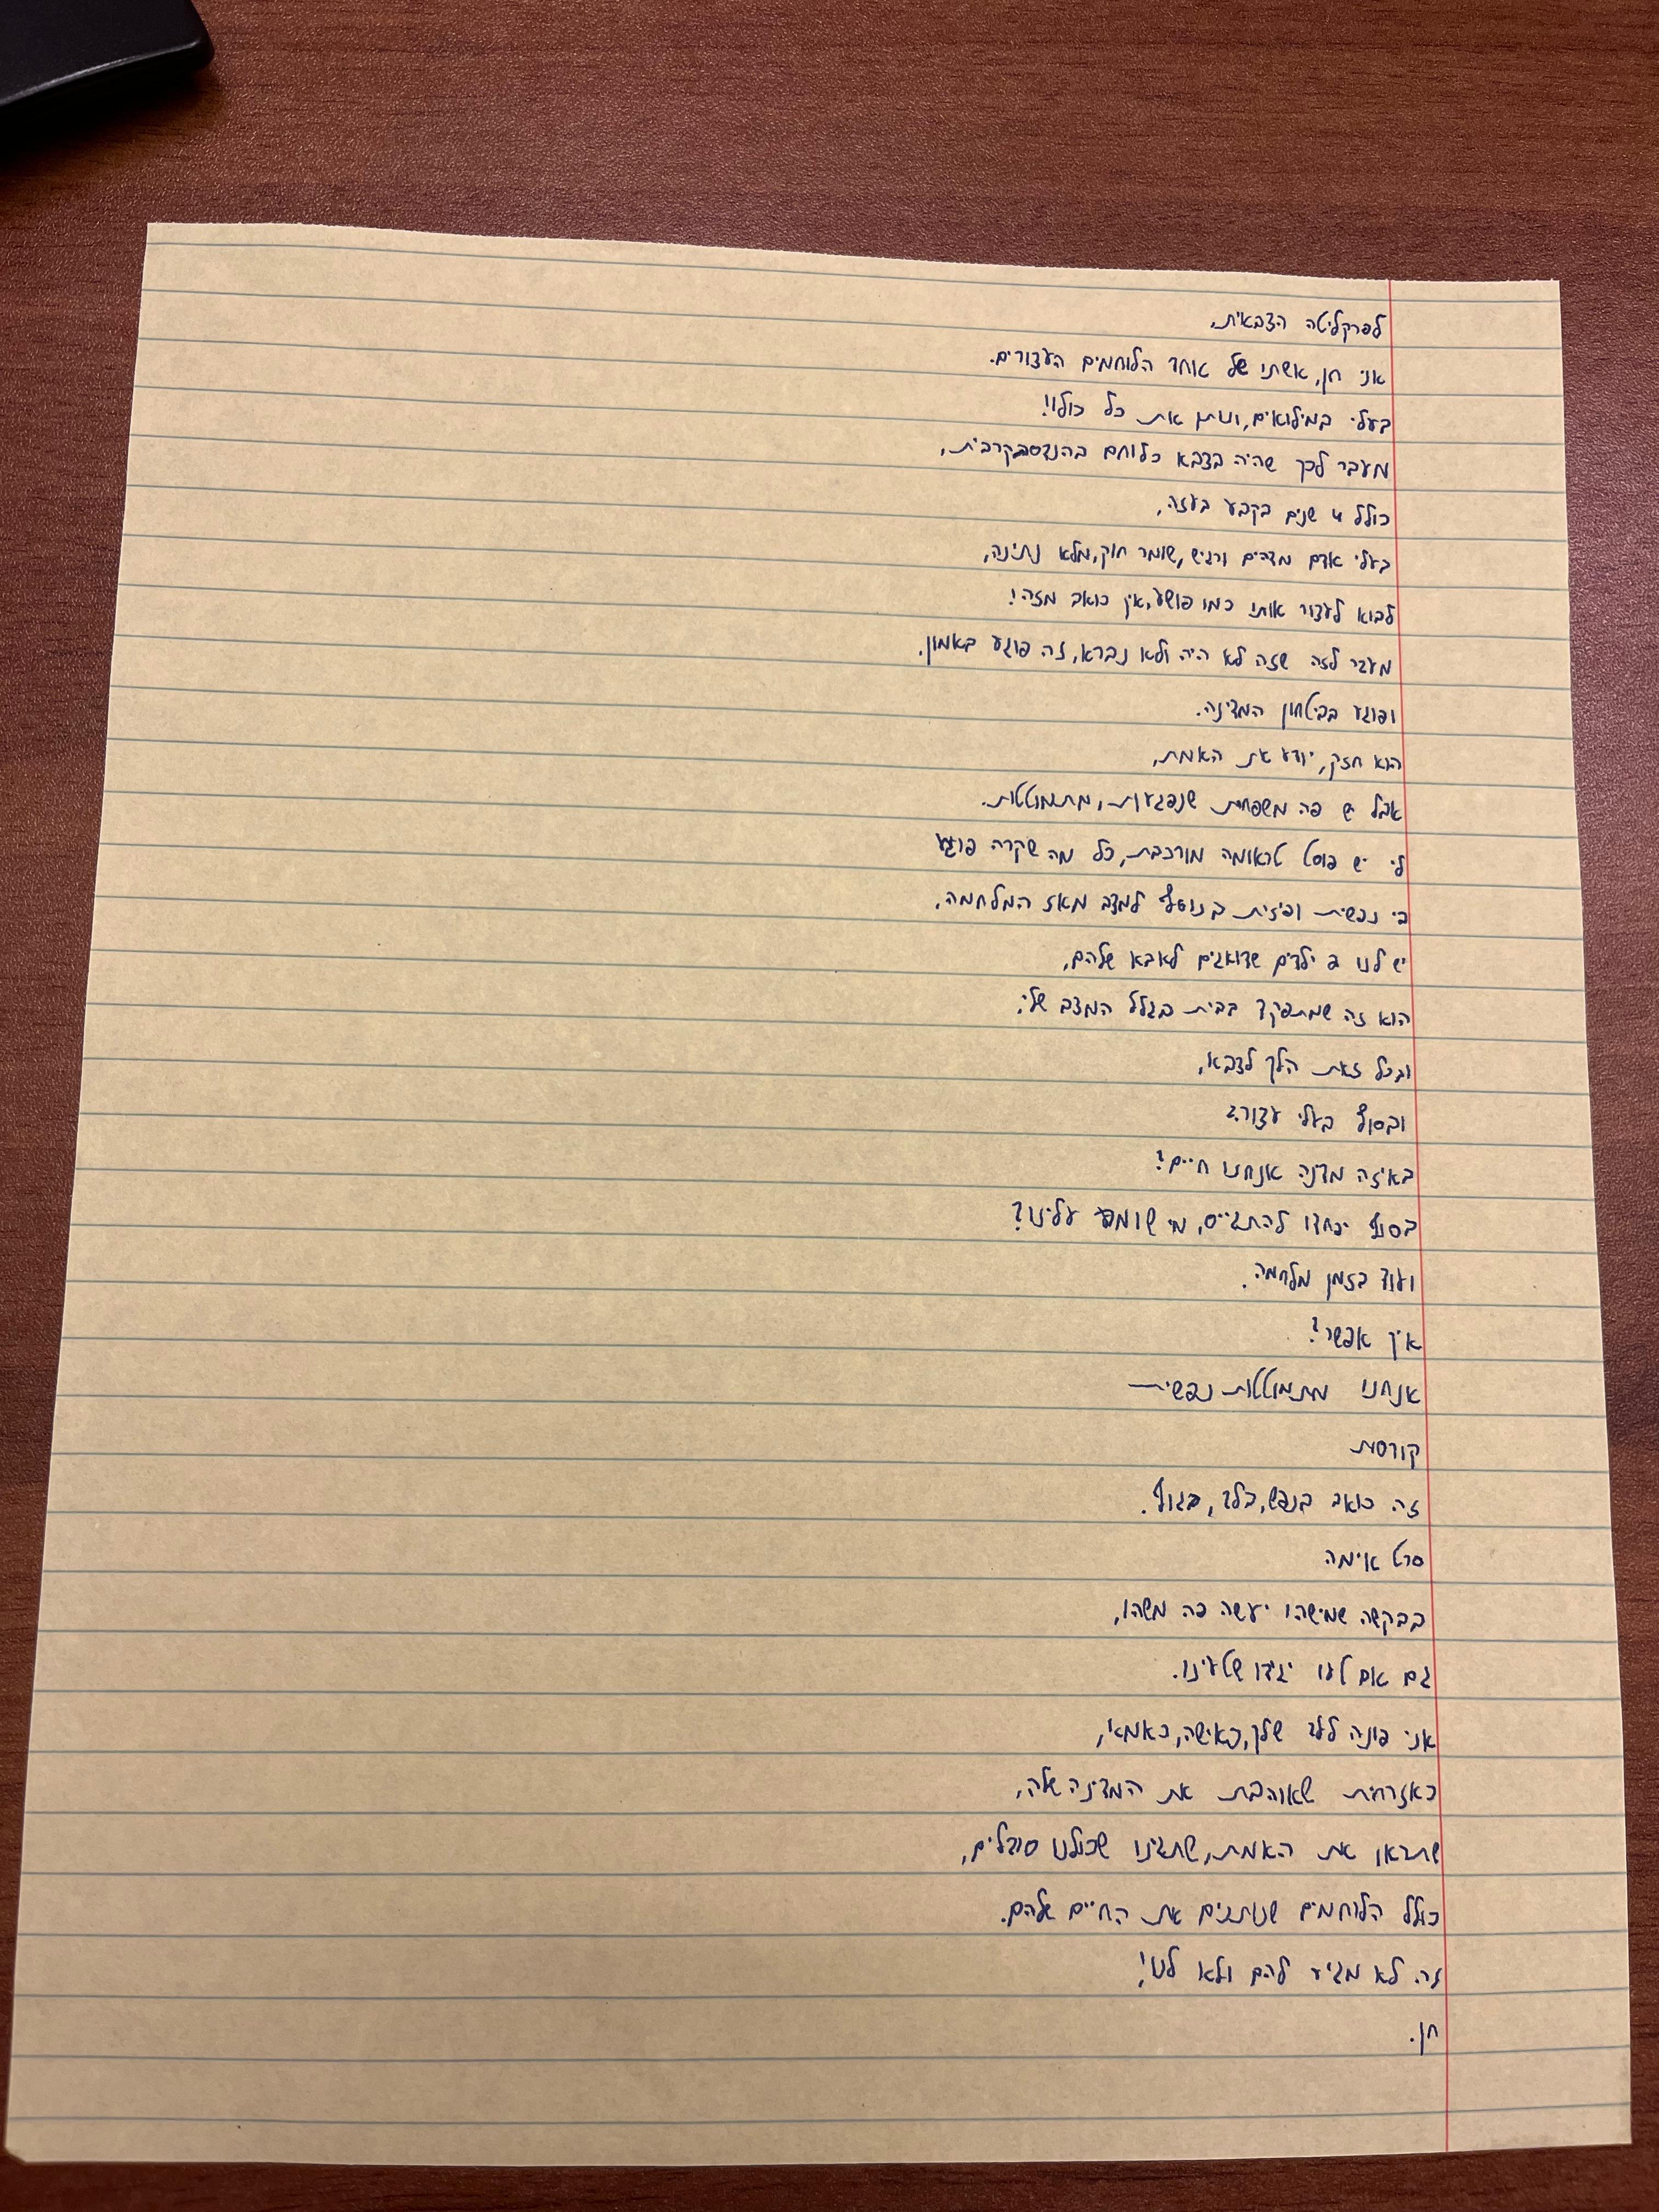 לפרקליטה הצבאית,
אני חן, אשתי של אחד הלוחמים העצורים.
בעלי במילואים, ונותן את כל כולו!
מעבר לכך שהיה בצבא כלוחם בהנדסה קרבית,
כולל 4 שנים בקבע בעזה,
בעלי אדם מדהים ורגיש, שומר חוק, מלא נתינה,
לבוא לעצור אותו כמו פושע, אין כואב מזה!
מעבר לזה שזה לא היה ולא נברא, זה פוגע באמון.
ופוגע בביטחון המדינה.
הוא חזק, יודע את האמת,
אבל יש פה משפחות שנפגעות, מתמוטטות.
לי יש פוסט טראומה מורכבת, כל מה שקרה פוגע
בי נפשית ופיזית בנוסף למצב מאז המלחמה,
יש לנו ילדים שדואגים לאבא שלהם,
הוא זה שמתפקד בבית בגלל המצב שלי,
ובכל זאת הלך לצבא,
ובסוף בעלי עצור?
באיזה מדינה אנחנו חיים?
בסוף יפחדו להתגייס, מי שומר עלינו?
ועוד בזמן מלחמה.
איך אפשר?
אנחנו מתמוטטות נפשית
קורסות
זה כואב בנפש, בלב, בגוף.
סרט אימה
בבקשה שמישהו יעשה פה משהו,
גם אם לעו יגידו שטעינו.
אני פונה ללב שלך, כאישה, כאמא,
כאזרחית שאוהבת את המדינה שלה,
שתראו את האמת, שתבינו שכולנו סובלים,
כולל הלוחמים שנותנים את החיים שלהם.
זה לא מגיע להם ולא לנו!
חן.